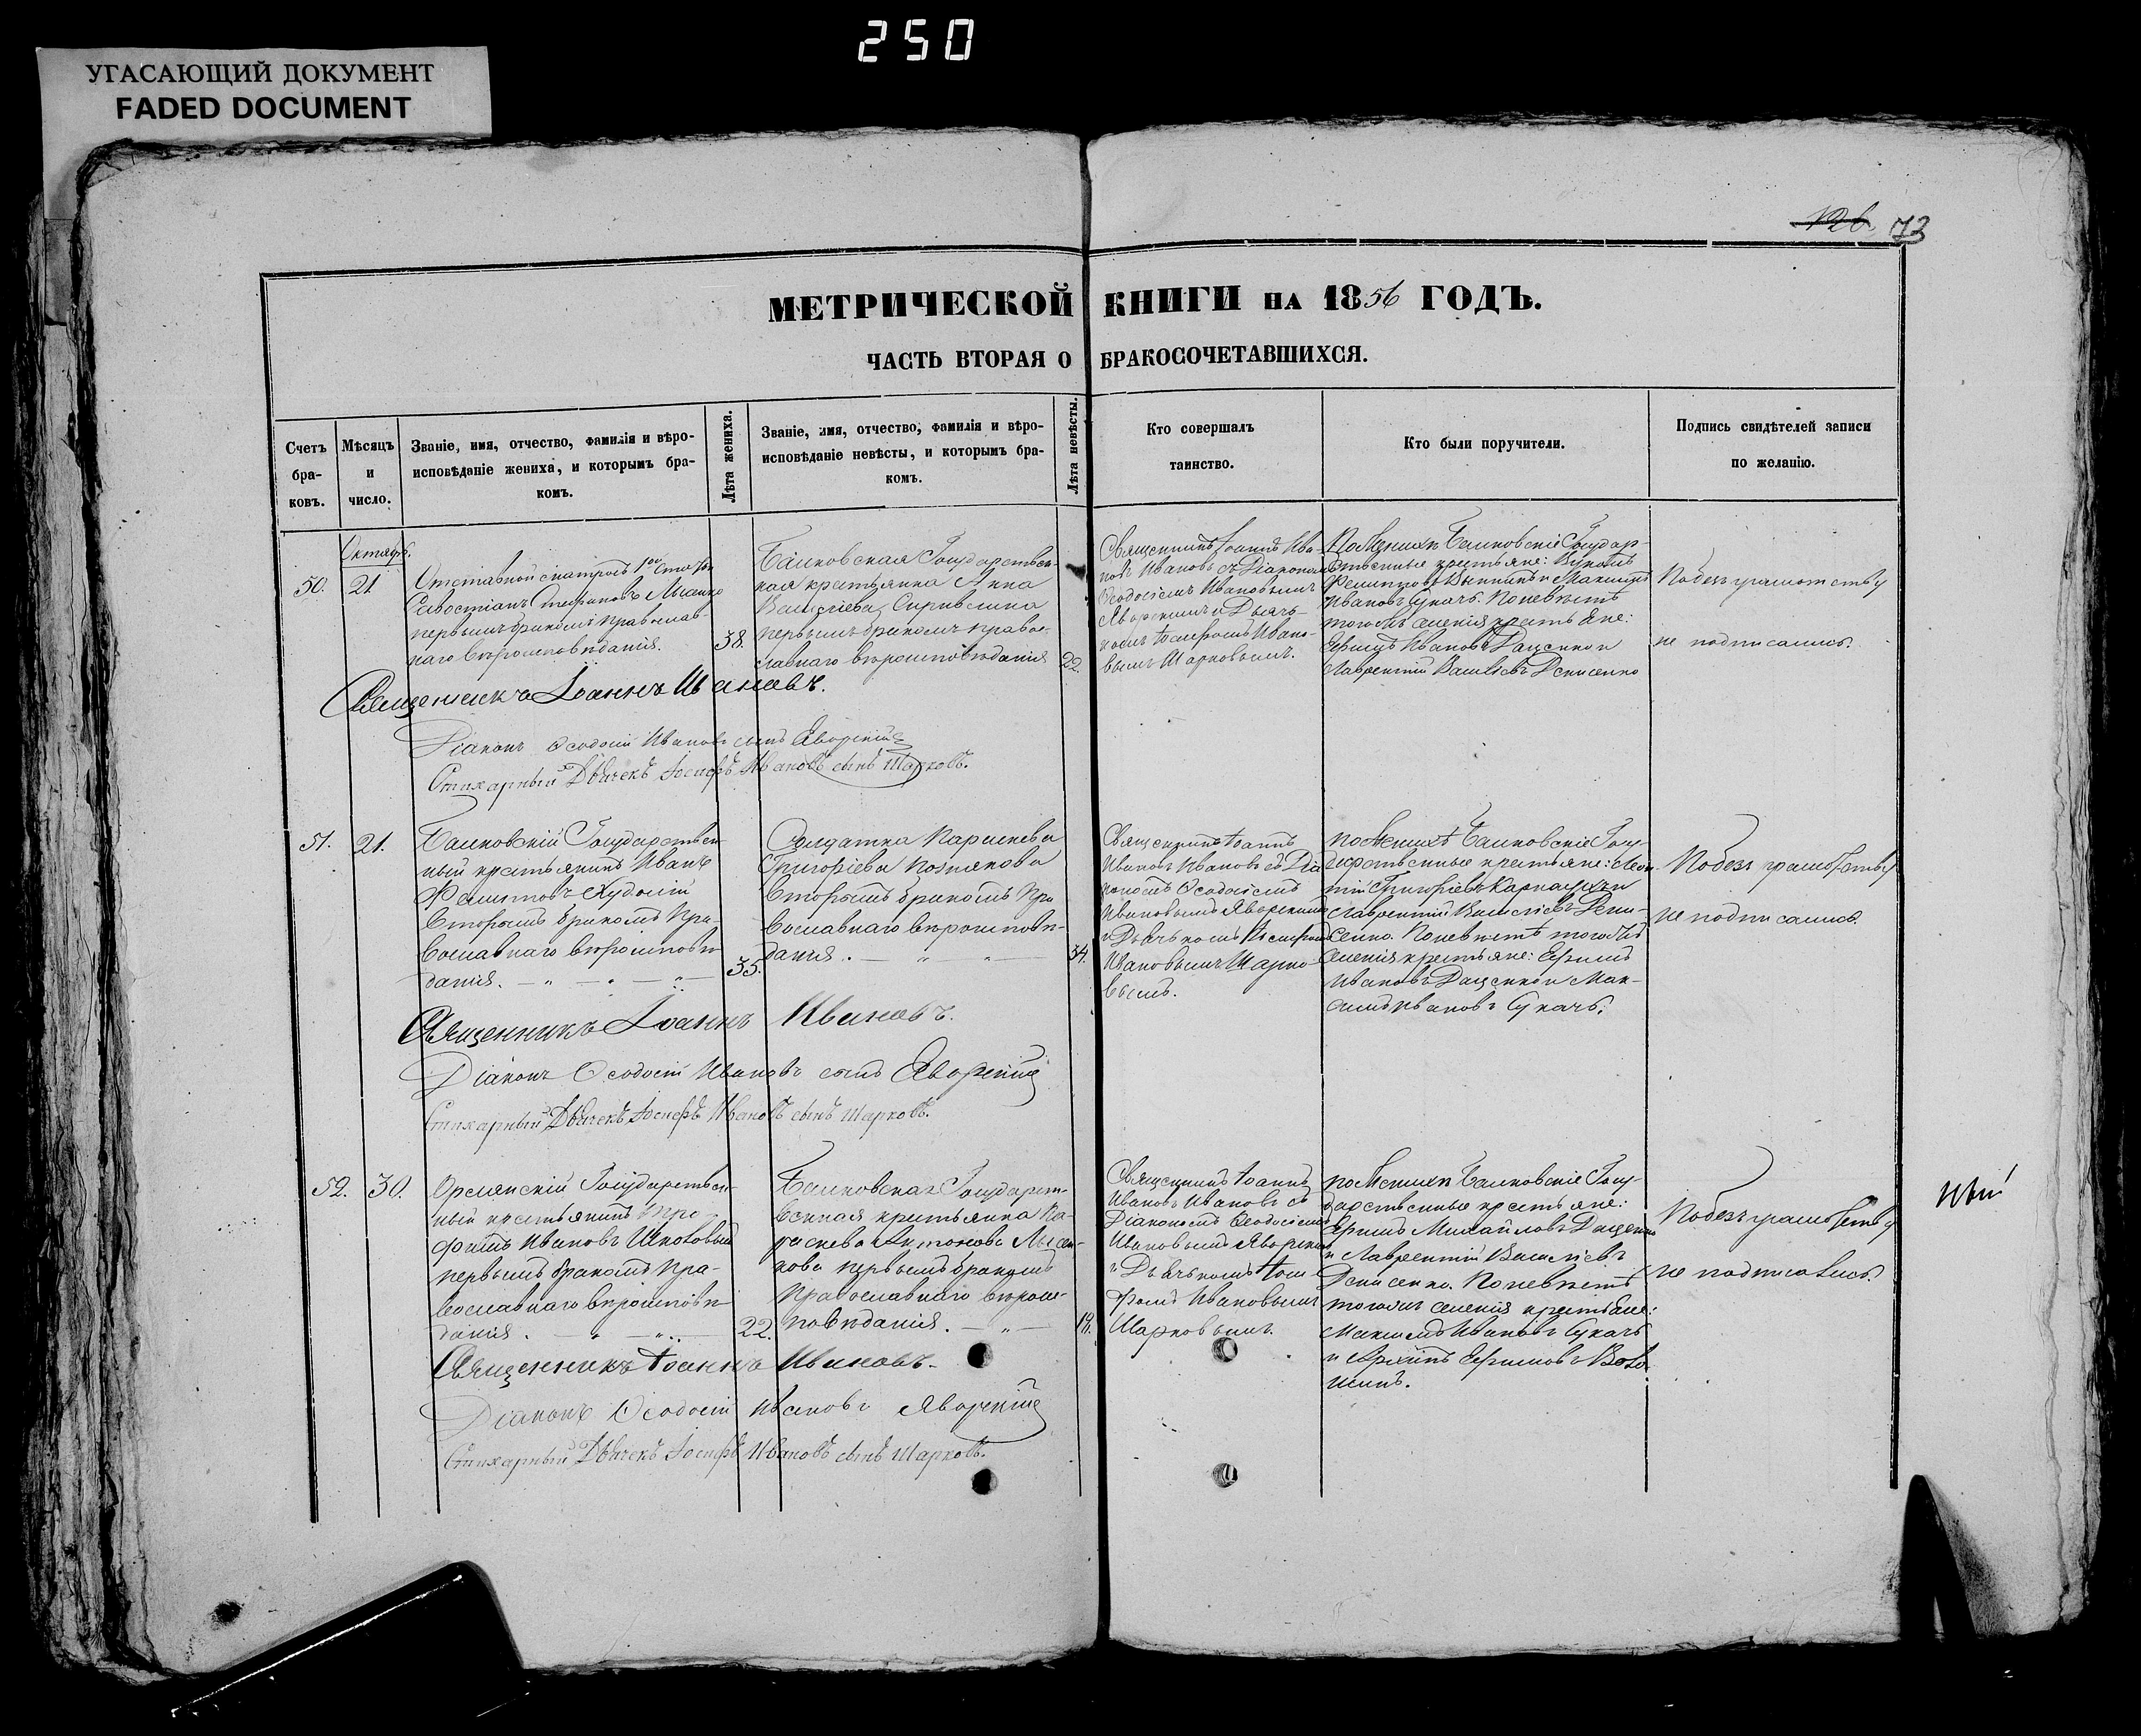 250
УГАСАЮЩИЙ ДОКУМЕНТ
FADED DOCUMENT
126. 73
МЕТРИЧЕСКОЙ КНИГИ НА 1856 ГОДЪ.
ЧАСТЬ ВТОРАЯ О БРАКОСОЧЕТАВШИХСЯ.
Счетъ
бра-
ковъ.
Мѣсяцъ
и
число.
Званіе, имя, отчество, фамилія и вѣро-
исповѣданіе жениха, и которымъ бра-
комъ.
Лѣта жениха.
Званіе, имя, отчество, фамилія и вѣро-
исповѣданіе невѣсты, и которымъ бра-
комъ.
Лѣта невѣсты.
Кто совершалъ
таинство.
Кто были поручители.
Подпись свидѣтелей записи
по желанію.
50.
Октябр.
21.
Отставной матросъ
Савостіанъ Лысенко
первымъ бракомъ православ-
наго вѣроисповѣданія.
38.
Государствен-
ная крестьянка Анна
первымъ бракомъ право-
славнаго вѣроисповѣданія
22.
Священникъ Іоаннъ Ива-
новъ Ивановъ съ Діакономъ
Ѳеодосіемъ Ивановымъ
Яворскимъ и Дьяч-
комъ Іосифомъ Ивано-
вымъ Шарковымъ.
По женихѣ Государ-
ственные крестьяне:
и Максимъ
Ивановъ Сукачъ. По невѣстѣ
тогожъ селенія крестьяне:
Ефимъ Ивановъ Даценко и
Лаврентій Василіевъ Денисенко
По безграмотству
не подписались.
Священникъ Іоаннъ Ивановъ.
Діаконъ Ѳеодосій Ивановъ сынъ Яворскій
Стихарный Дьячекъ Іосифъ Ивановъ сынъ Шарковъ.
51.
21.
Государствен-
ный крестьянинъ Иванъ
вторымъ бракомъ Пра-
вославнаго вѣроисповѣ-
данія.
35.
Солдатка Параскева
Григоріева Познякова
вторымъ бракомъ Пра-
вославнаго вѣроисповѣ-
данія.
34.
Священникъ Іоаннъ
Ивановъ Ивановъ съ Діа-
кономъ Ѳеодосіемъ
Ивановымъ Яворскимъ
и Дьячкомъ Іосифомъ
Ивановымъ Шарко-
вымъ.
По женихѣ Госу-
дарственные крестьяне:
Григоріевъ и
Лаврентій Василіевъ Дени-
сенко. По невѣстѣ тогожъ
селенія крестьяне: Ефимъ
Ивановъ Даценко и Мак-
симъ Ивановъ Сукачъ.
По безграмотству
не подписались.
Священникъ Іоаннъ Ивановъ.
Діаконъ Ѳеодосій Ивановъ сынъ Яворскій
Стихарный Дьячекъ Іосифъ Ивановъ сынъ Шарковъ.
52.
30.
Орлянскій Государствен-
ный крестьянинъ Тро-
фимъ Ивановъ
первымъ бракомъ Пра-
вославнаго вѣроисповѣ-
данія.
22.
Государст-
венная крестьянка Па-
раскева Антонова Лысен-
кова первымъ бракомъ
Православнаго вѣроис-
повѣданія.
18.
Священникъ Іоаннъ
Ивановъ Ивановъ съ
Діакономъ Ѳеодосіемъ
Ивановымъ Яворскимъ
и Дьячкомъ Іоси-
фомъ Ивановымъ
Шарковымъ.
По женихѣ Госу-
дарственные крестьяне:
Ефимъ Михайловъ Даценко
и Лаврентій Василіевъ
Денисенко. По невѣстѣ
тогожъ селенія крестьяне:
Максимъ Ивановъ Сукачъ
и Архипъ Ефимовъ
По безграмотству
не подписались.
Священникъ Іоаннъ Ивановъ.
Діаконъ Ѳеодосій Ивановъ Яворскій
Стихарный Дьячекъ Іосифъ Ивановъ сынъ Шарковъ.